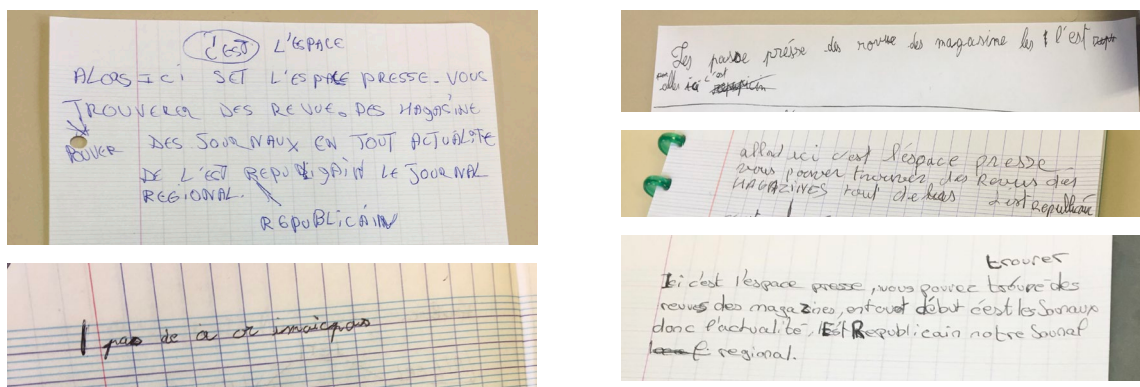 C'EST L'ESPACE
ALORS ICI SET L'ESPACE PRESSE. VOUS
TROUVERER DES REVUE. DES MAGASINE
POUVER DES JOURNAUX EN TOUT ACTUALITE
DE L'EST REPUBLIGAIN LE JOURNAL
REGIONAL.
REPUBLICAIN
pas de a
Les passe présse des rovue des magasine les l'est
aller ici c'est
allor ici c'est l'éspace presse
vous pouver trouver des Revus des
MAGAZINES tout de L'est republicain
trouver
Ici c'est l'espace presse, vous pouvez trouvé des
revues des magazines, en tout début c'est les Jornaux
donc l'actualité, L'Est Republicain notre Journal
regional.